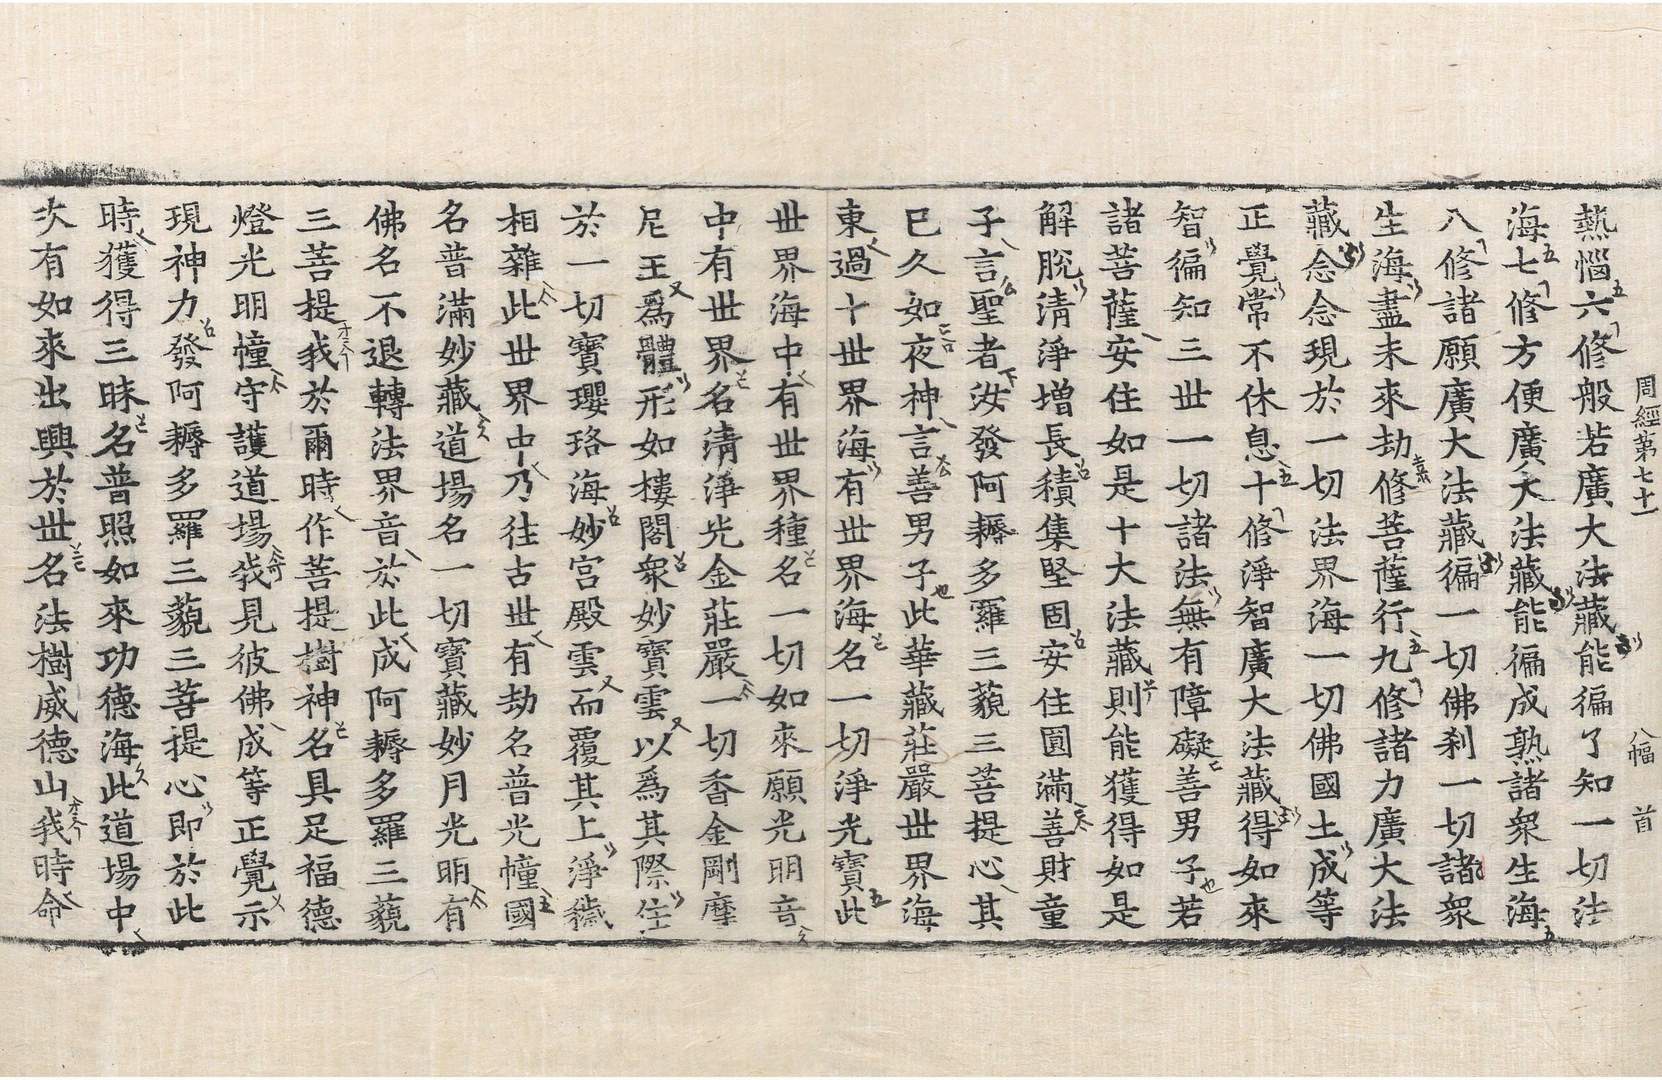 周經第七十一　八幅　首
熱惱六修般若廣大法藏能徧了知一切法
海七修方便廣大法藏能徧成熟諸衆生海
八修諸願廣大法藏徧一切佛刹一切諸衆
生海盡未來劫修菩薩行九修諸力廣大法
藏念念現於一切法界海一切佛國土成等
正覺常不休息十修淨智廣大法藏得如來
智徧知三世一切諸法無有障礙善男子若
諸菩薩安住如是十大法藏則能獲得如是
解脫清淨增長積集堅固安住圓滿善財童
子言聖者汝發阿耨多羅三藐三菩提心其
已久如夜神言善男子此華藏莊嚴世界海
東過十世界海有世界海名一切淨光寶此
世界海中有世界種名一切如來願光明音
中有世界名清淨光金莊嚴一切香金剛摩
尼王爲體形如樓閣衆妙寶雲以爲其際住
於一切寶瓔珞海妙宮殿雲而覆其上淨穢
相雜此世界中乃往古世有劫名普光幢國
名普滿妙藏道場名一切寶藏妙月光明有
佛名不退轉法界音於此成阿耨多羅三藐
三菩提我於爾時作菩提樹神名具足福德
燈光明幢守護道場我見彼佛成等正覺示
現神力發阿耨多羅三藐三菩提心即於此
時獲得三昧名普照如來功德海此道場中
次有如來出興於世名法樹威德山我時命